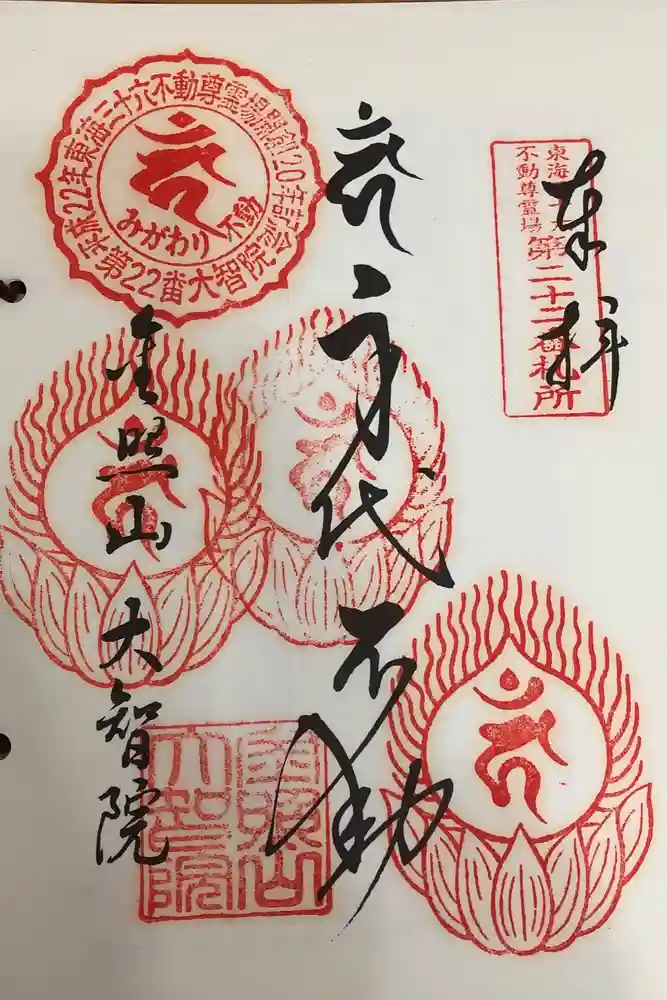 奉拝
東海三十六
不動尊霊場
第二十二番札所
身代不動
金照山 大智院
東海三十六不動尊霊場開創20年記念
平成22年
第22番大智院
みがわり不動
金照山
大智院